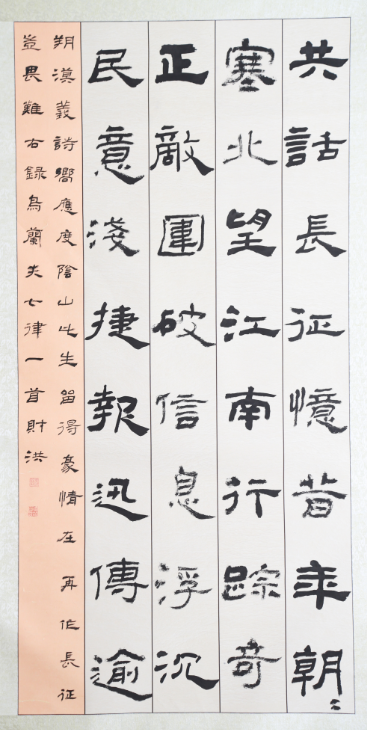 共話長征憶昔年朝々
塞北望江南行踪奇
正敵圍破信息浮沉
民意淺捷報迅傳逾
朔漠義詩嚮應度陰山此生留得豪情在再作長征
豈畏難右錄烏蘭夫七律一首財洪